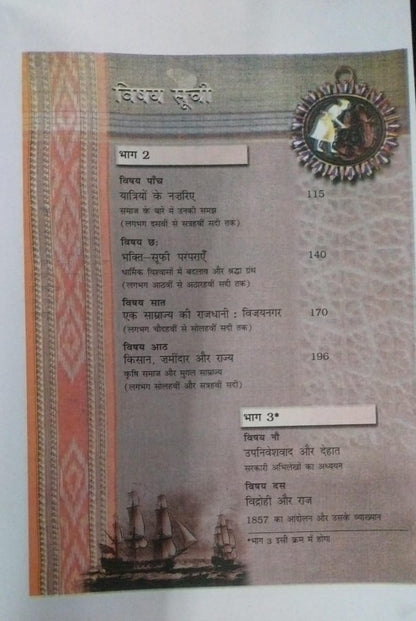 विषय सूची
भाग 2
विषय पाँच
यात्रियों के नज़रिए 115
समाज के बारे में उनकी समझ
(लगभग दसवीं से सत्रहवीं सदी तक)
विषय छः
भक्ति-सूफी परंपराएँ 140
धार्मिक विश्वासों में बदलाव और श्रद्धा ग्रंथ
(लगभग आठवीं से अठारहवीं सदी तक)
विषय सात
एक साम्राज्य की राजधानी : विजयनगर 170
(लगभग चौदहवीं से सोलहवीं सदी तक)
विषय आठ
किसान, जमींदार और राज्य 196
कृषि समाज और मुगल साम्राज्य
(लगभग सोलहवीं और सत्रहवीं सदी)
भाग 3*
विषय नौ
उपनिवेशवाद और देहात
सरकारी अभिलेखों का अध्ययन
विषय दस
विद्रोही और राज
1857 का आंदोलन और उसके व्याख्यान
*भाग 3 इसी क्रम में होगा